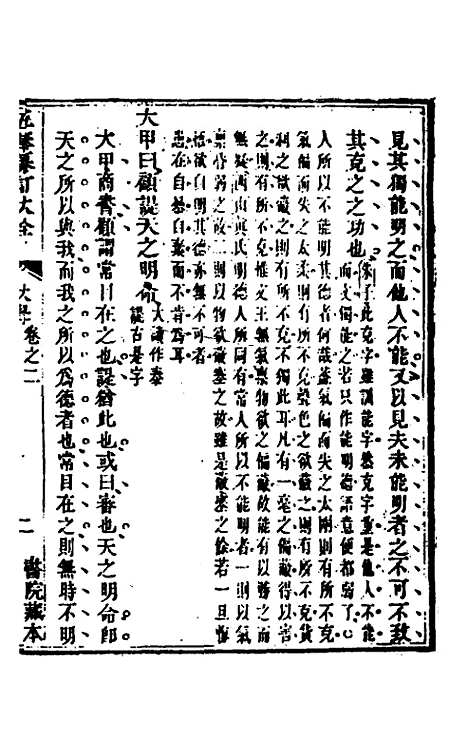 見其獨能明之而他人不能又以見夫未能明者之不可不致
其克之之功也
朱子曰此克字雖訓能字然克字重是他人不能
而文獨能之若只作能明德語意便都弱了
人所以不能明其德者何哉蓋氣偏而失之太剛則有所不克
氣偏而失之太柔則有所不克聲色之欲蔽之則有所不克貨
利之欲蔽之則有所不克不獨此耳凡有一毫之偏蔽得以害
之則有所不克惟文王無氣稟物欲之偏蔽故能有以勝之而
無疑
西山真氏明德人所同有常人所以不能明者一則以氣
稟昏弱之故二則以物欲蔽塞之故雖是蔽塞之餘若一旦悔
悟欲自明其德亦無不可者
患在自暴自棄而不肯為耳
大甲曰顧諟天之明命
大讀作泰
諟古是字
大甲商書顧謂常目在之也諟猶此也或曰審也天之明命即
天之所以與我而我之所以為德者也常目在之則無時不明
大全
大學
卷之二
二
書院藏本